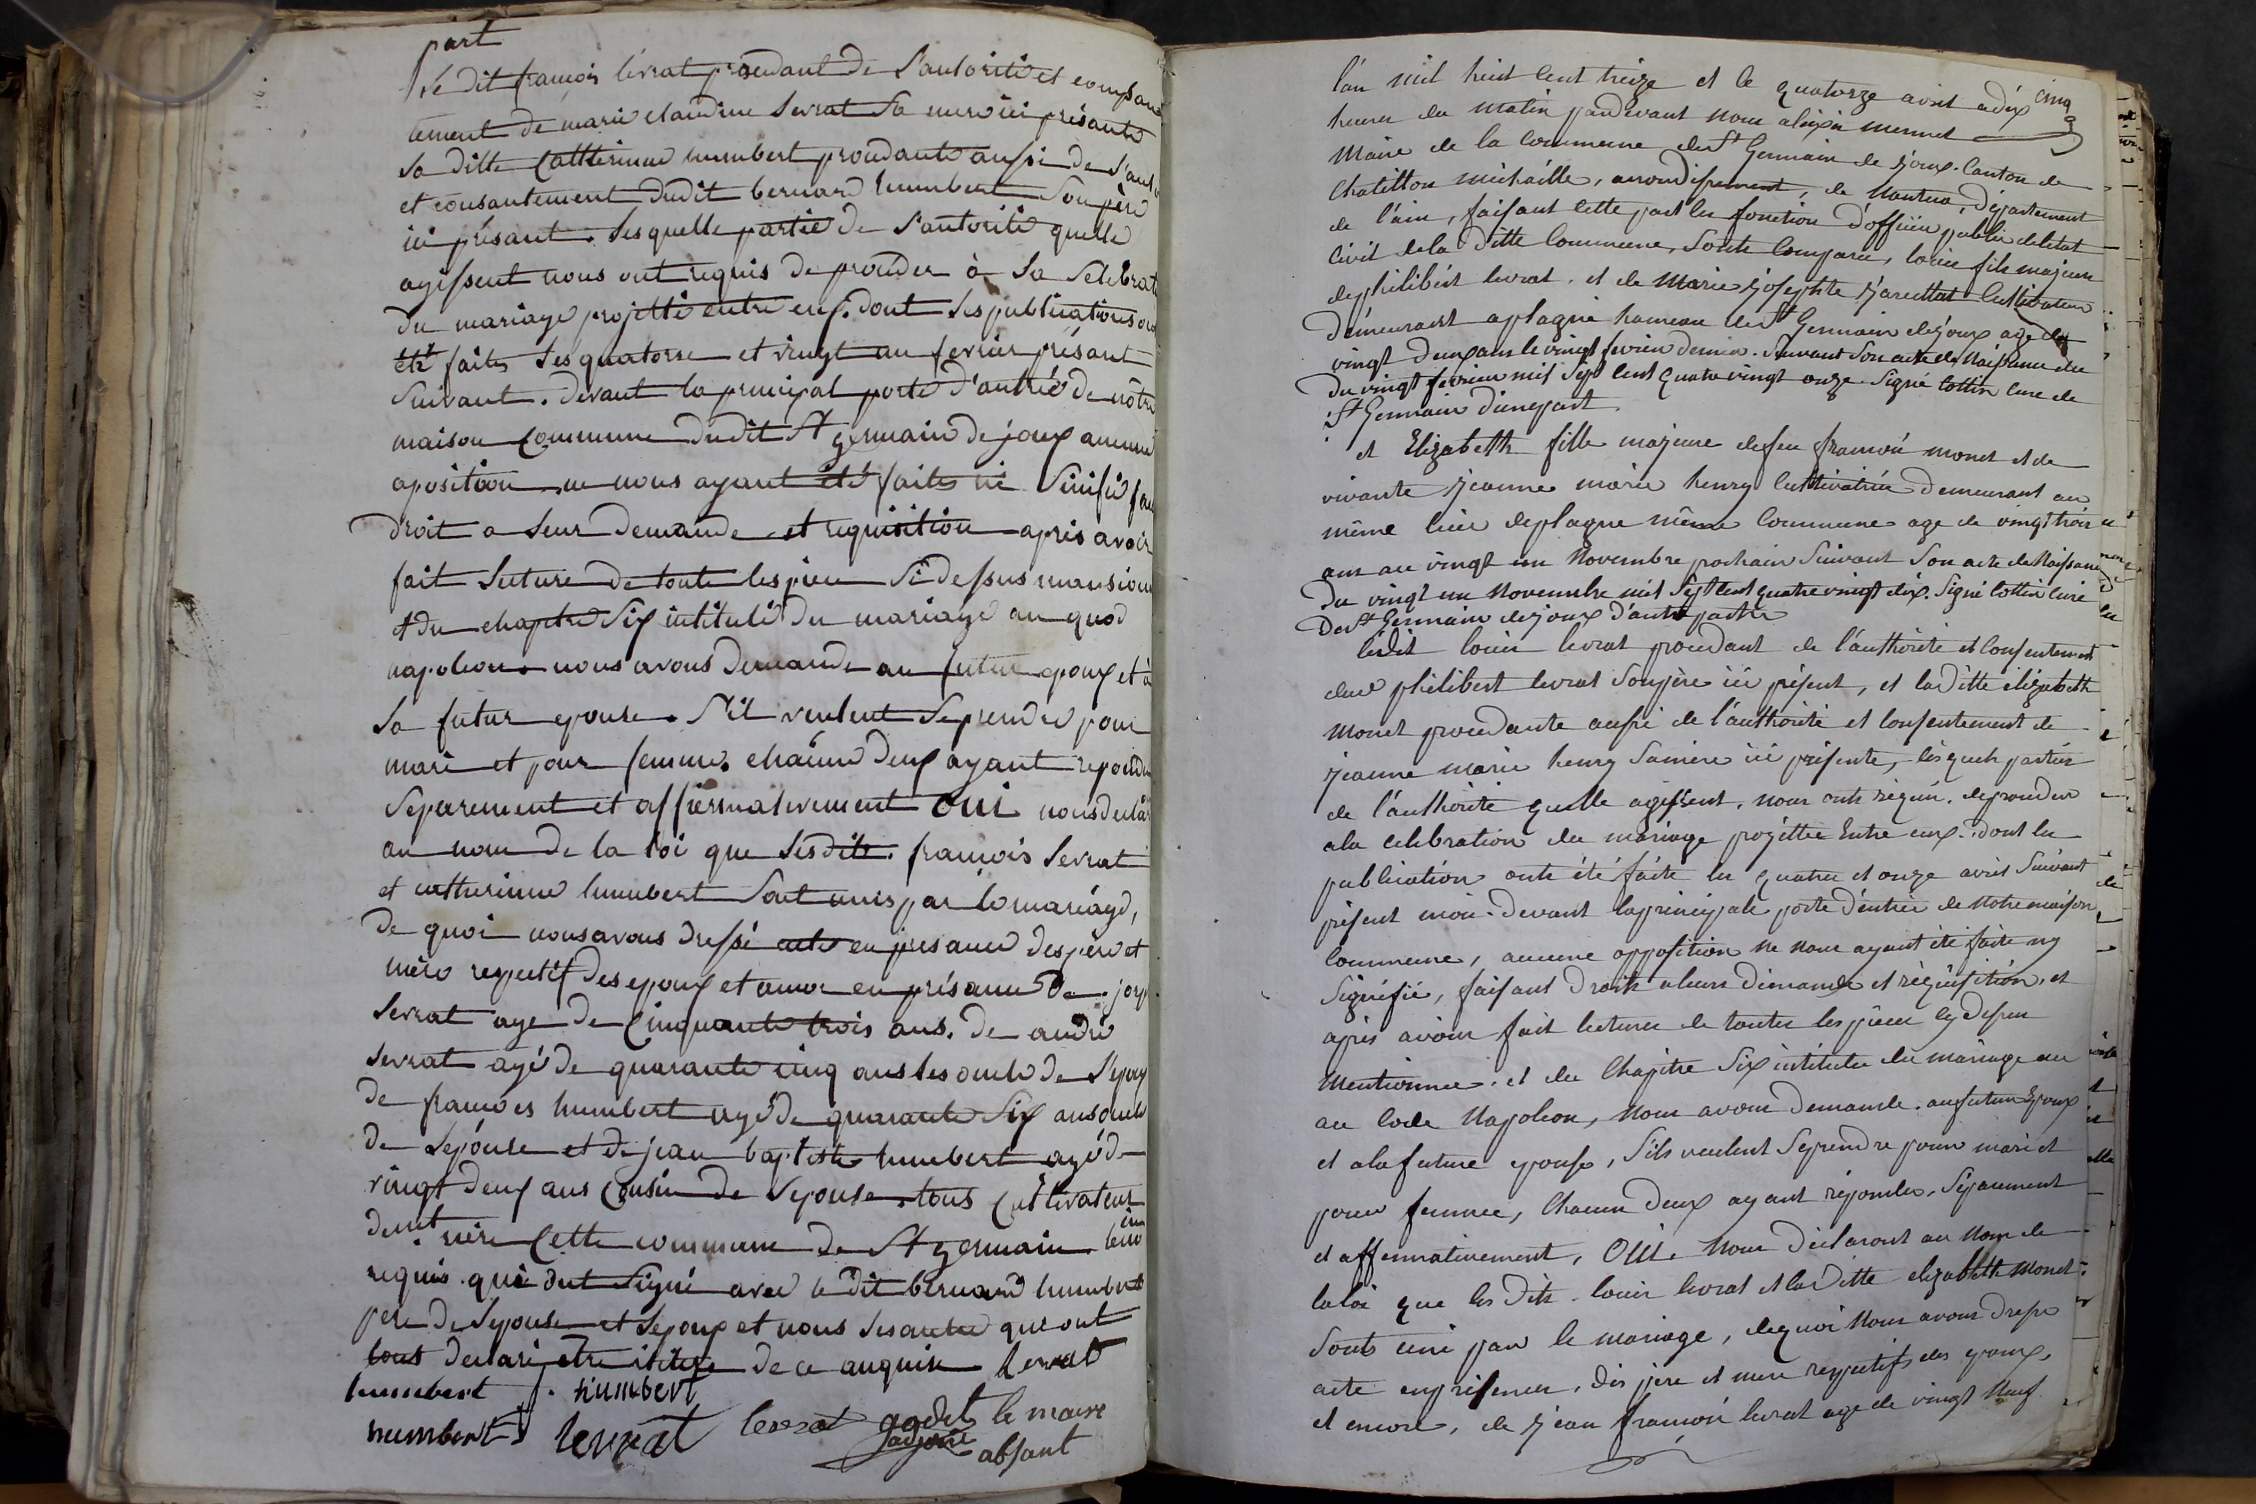 part
Le dit françois levrat procedant de l'autorité et consan
tement de marie claudine levrat sa mere ici présante
la ditte Catterinne humbert procdante aussi de l'auto
et consantement dudit bernard humbert son père
ici présant. Lesquelle partie de l'autorité quelle
agissent nous ont requis de proceder à la Selebrat
du mariage projetté entre eux. dont les publications on
été faites les quatorse et vingt un fevrier présant
Suivant. devant la principal porte d'antrée de nôtre
maison Commune dudit St germain de joux aucune
aposition ne nous ayant été faites ni Sinifié fai
droit a leur demande et requisition après avoir
fait lecture de toute les piece Si dessus mansione
et du chapitre Six intitulé du mariage au quod
napoleon nous avons demande au futur epoux et à
la futur epouse. S'il veulent Se prendre pour
mari et pour femme. chacun deux ayant repondu
Separement et affirmativement Oui nous declar
au nom de la loi que lesdits françois levrat
et catherinne humbert sont unis par le mariage,
de quoi nous avons dressé acte en presance des père et
mère respectif des epoux et ancor en présance de josp
levrat age de Cinquante trois ans. de andré
levrat agé de quarante cinq ans les oncle de l'epoux
de françois humbert agé de quarante Six ans oncle
de lepouse et de jean baptiste humbert agé de
vingt deux ans Cousin de lepouse. tous Cultivateur
demt rière Cette commune de St germain témoin
requis qui ont Signé avec le dit bernard humbert
pere de lepouse et lepoux et nous les autre que ont
tous declaré etre illitere de ce anquis levrat
humbert f. humbert
humbert levrat levrat godet le maire
adjoint absant
cinq
l'an mil huit cent treize et le quatorze avril a dix
heures du matin pardevant nous alexis mermet
Maire de la Commune de St Germain de Joux. Canton de
Chatillon michaille, arrondissement, de Nantua, Département
de l'ain, faisant cette part les fonction d'officier public de letat
Civil de la ditte Commune, Sonts comparu, louis fils majeur
de philibért levrat. et de Marie josephte Cultivateur
demeurant a plagne hameau de St Germain de joux age de
vingt deux ans le vingt fevrier dernier. Suivant Son acte de Naissance du
du vingt fevrier mil Sept Cent quatre vingt onze Signé Cottin Cure de
St Germain d'une part
et Elizabeth fille majeure de feu françoi monet et de
vivante jeanne marie henry Cultivatrice demeurant au
même lieu de plagne même Commune age de vingt trois
ans au vingt un Novembre prochain Suivant Son acte de Naissance
du vingt un Novembre mil Sept Cent quatre vingt dix. Signé Cottin Curé
de St Germain de joux d'autre partie
ledit louis levrat procedant de l'authorité et Consentement
dud philibert levrat Son père ici présent, et la ditte elizabeth
Monet procedante aussi de l'authorité et Consentement de
jeanne marie henry Sa mère ici présente, les quels parties
de l'authorité quelle agissent, nous onts réquis. de proceder
a la celebration du mariage projettée Entre eux. dont les
publication onts été faite les quatre et onze avril Suivant
présent mois. devant la principale porte d'entrée de Notre maison
Commune, aucune opposition ne nous ayant été faite ny
Signéfié, faisant droits a leurs demande et réquisition. et
après avoir fait lecture de toutes les pièces cydessus
Mentionnee. et du Chapitre Six intitulée du mariage au
au Code Napoleon, Nous avons demande. au futur Epoux
et a la future epouse, Sils veulent Seprendre pour mari et
pour femme, Chacun deux ayant réponder, Séparement
et affermativement, OUI. Nous déclarons au Nom de
la loi que les dits louis levrat et la ditte elizabeth Monet
Sonts uni par le mariage, de quoi Nous avons dressé
acte en présence, des père et mere respectifs des epoux,
et encore, de jean françoi levrat age de vingt Neuf